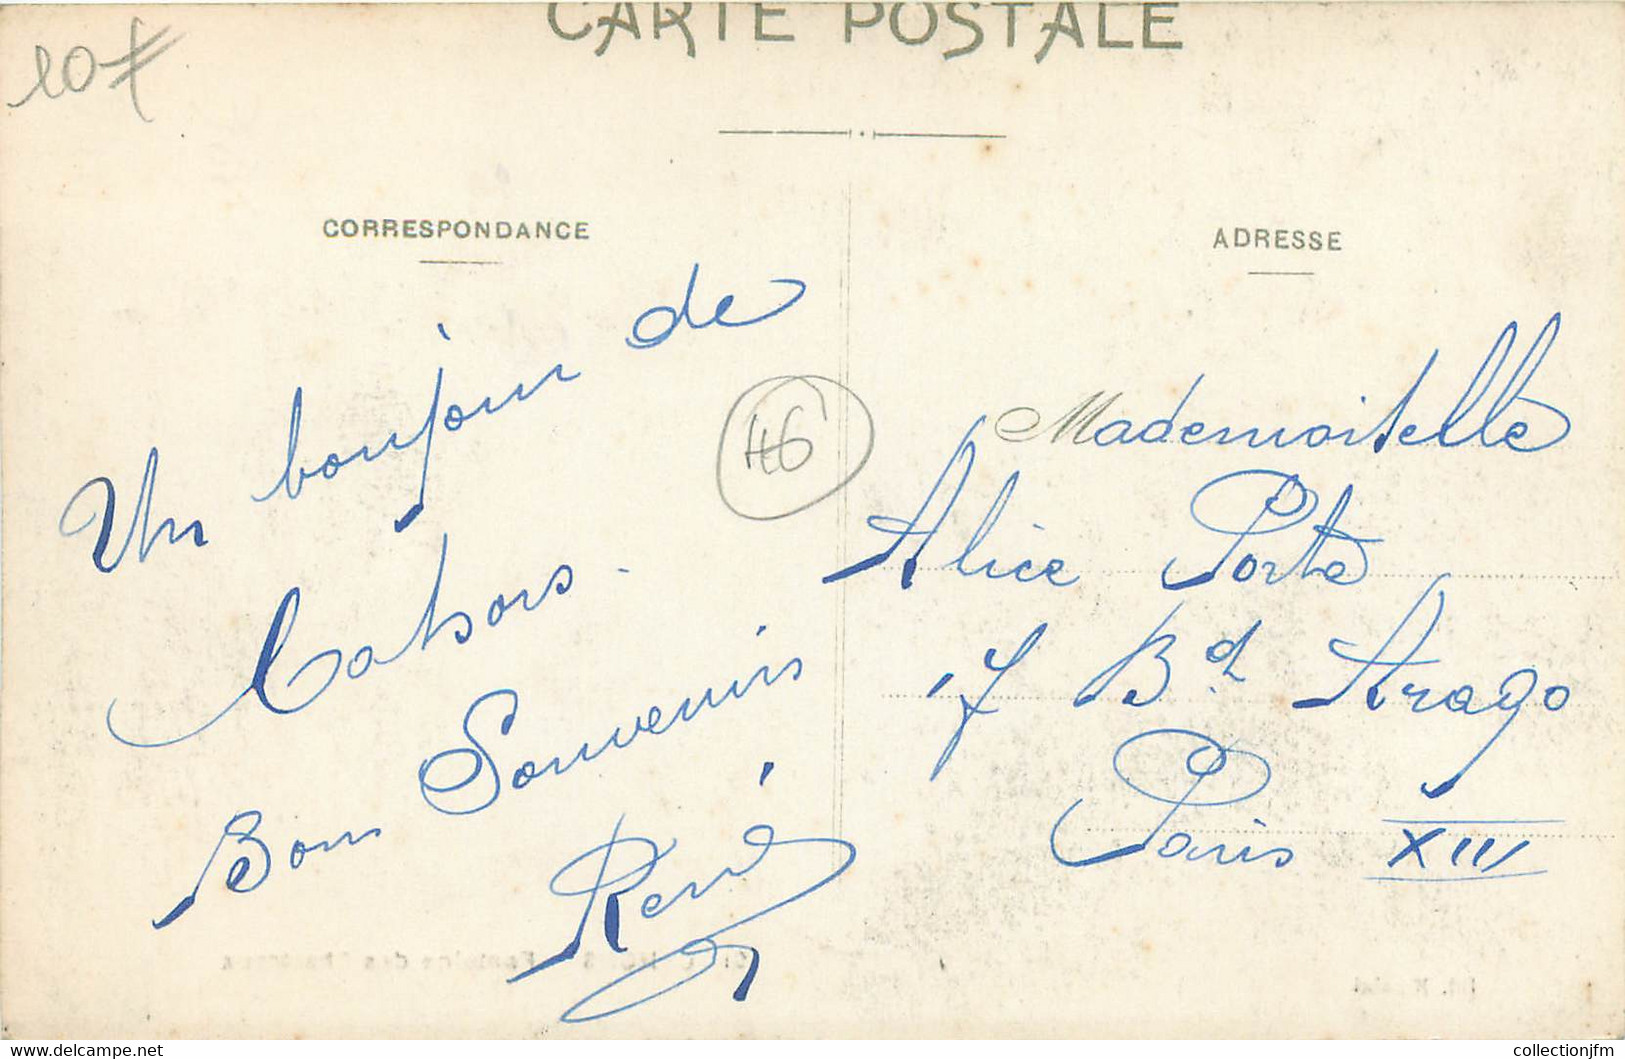 CARTE POSTALE
10 F
CORRESPONDANCE
ADRESSE
Un bonjour de
Cahors.
Bons Souvenirs
René
46
Mademoiselle
Alice Porte
7 Bd Arago
Paris XIII
collectionjfm